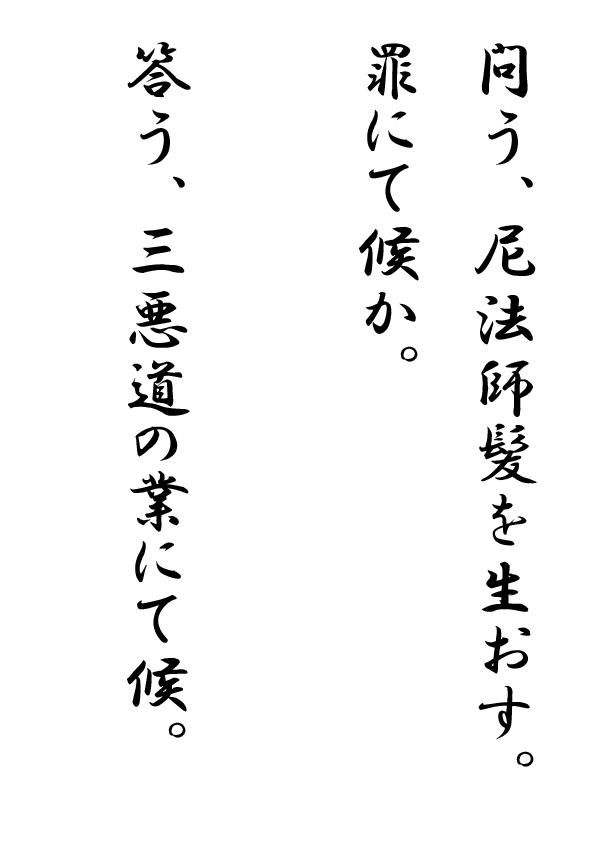 問う、尼法師髪を生おす。
罪にて候か。
答う、三悪道の業にて候。